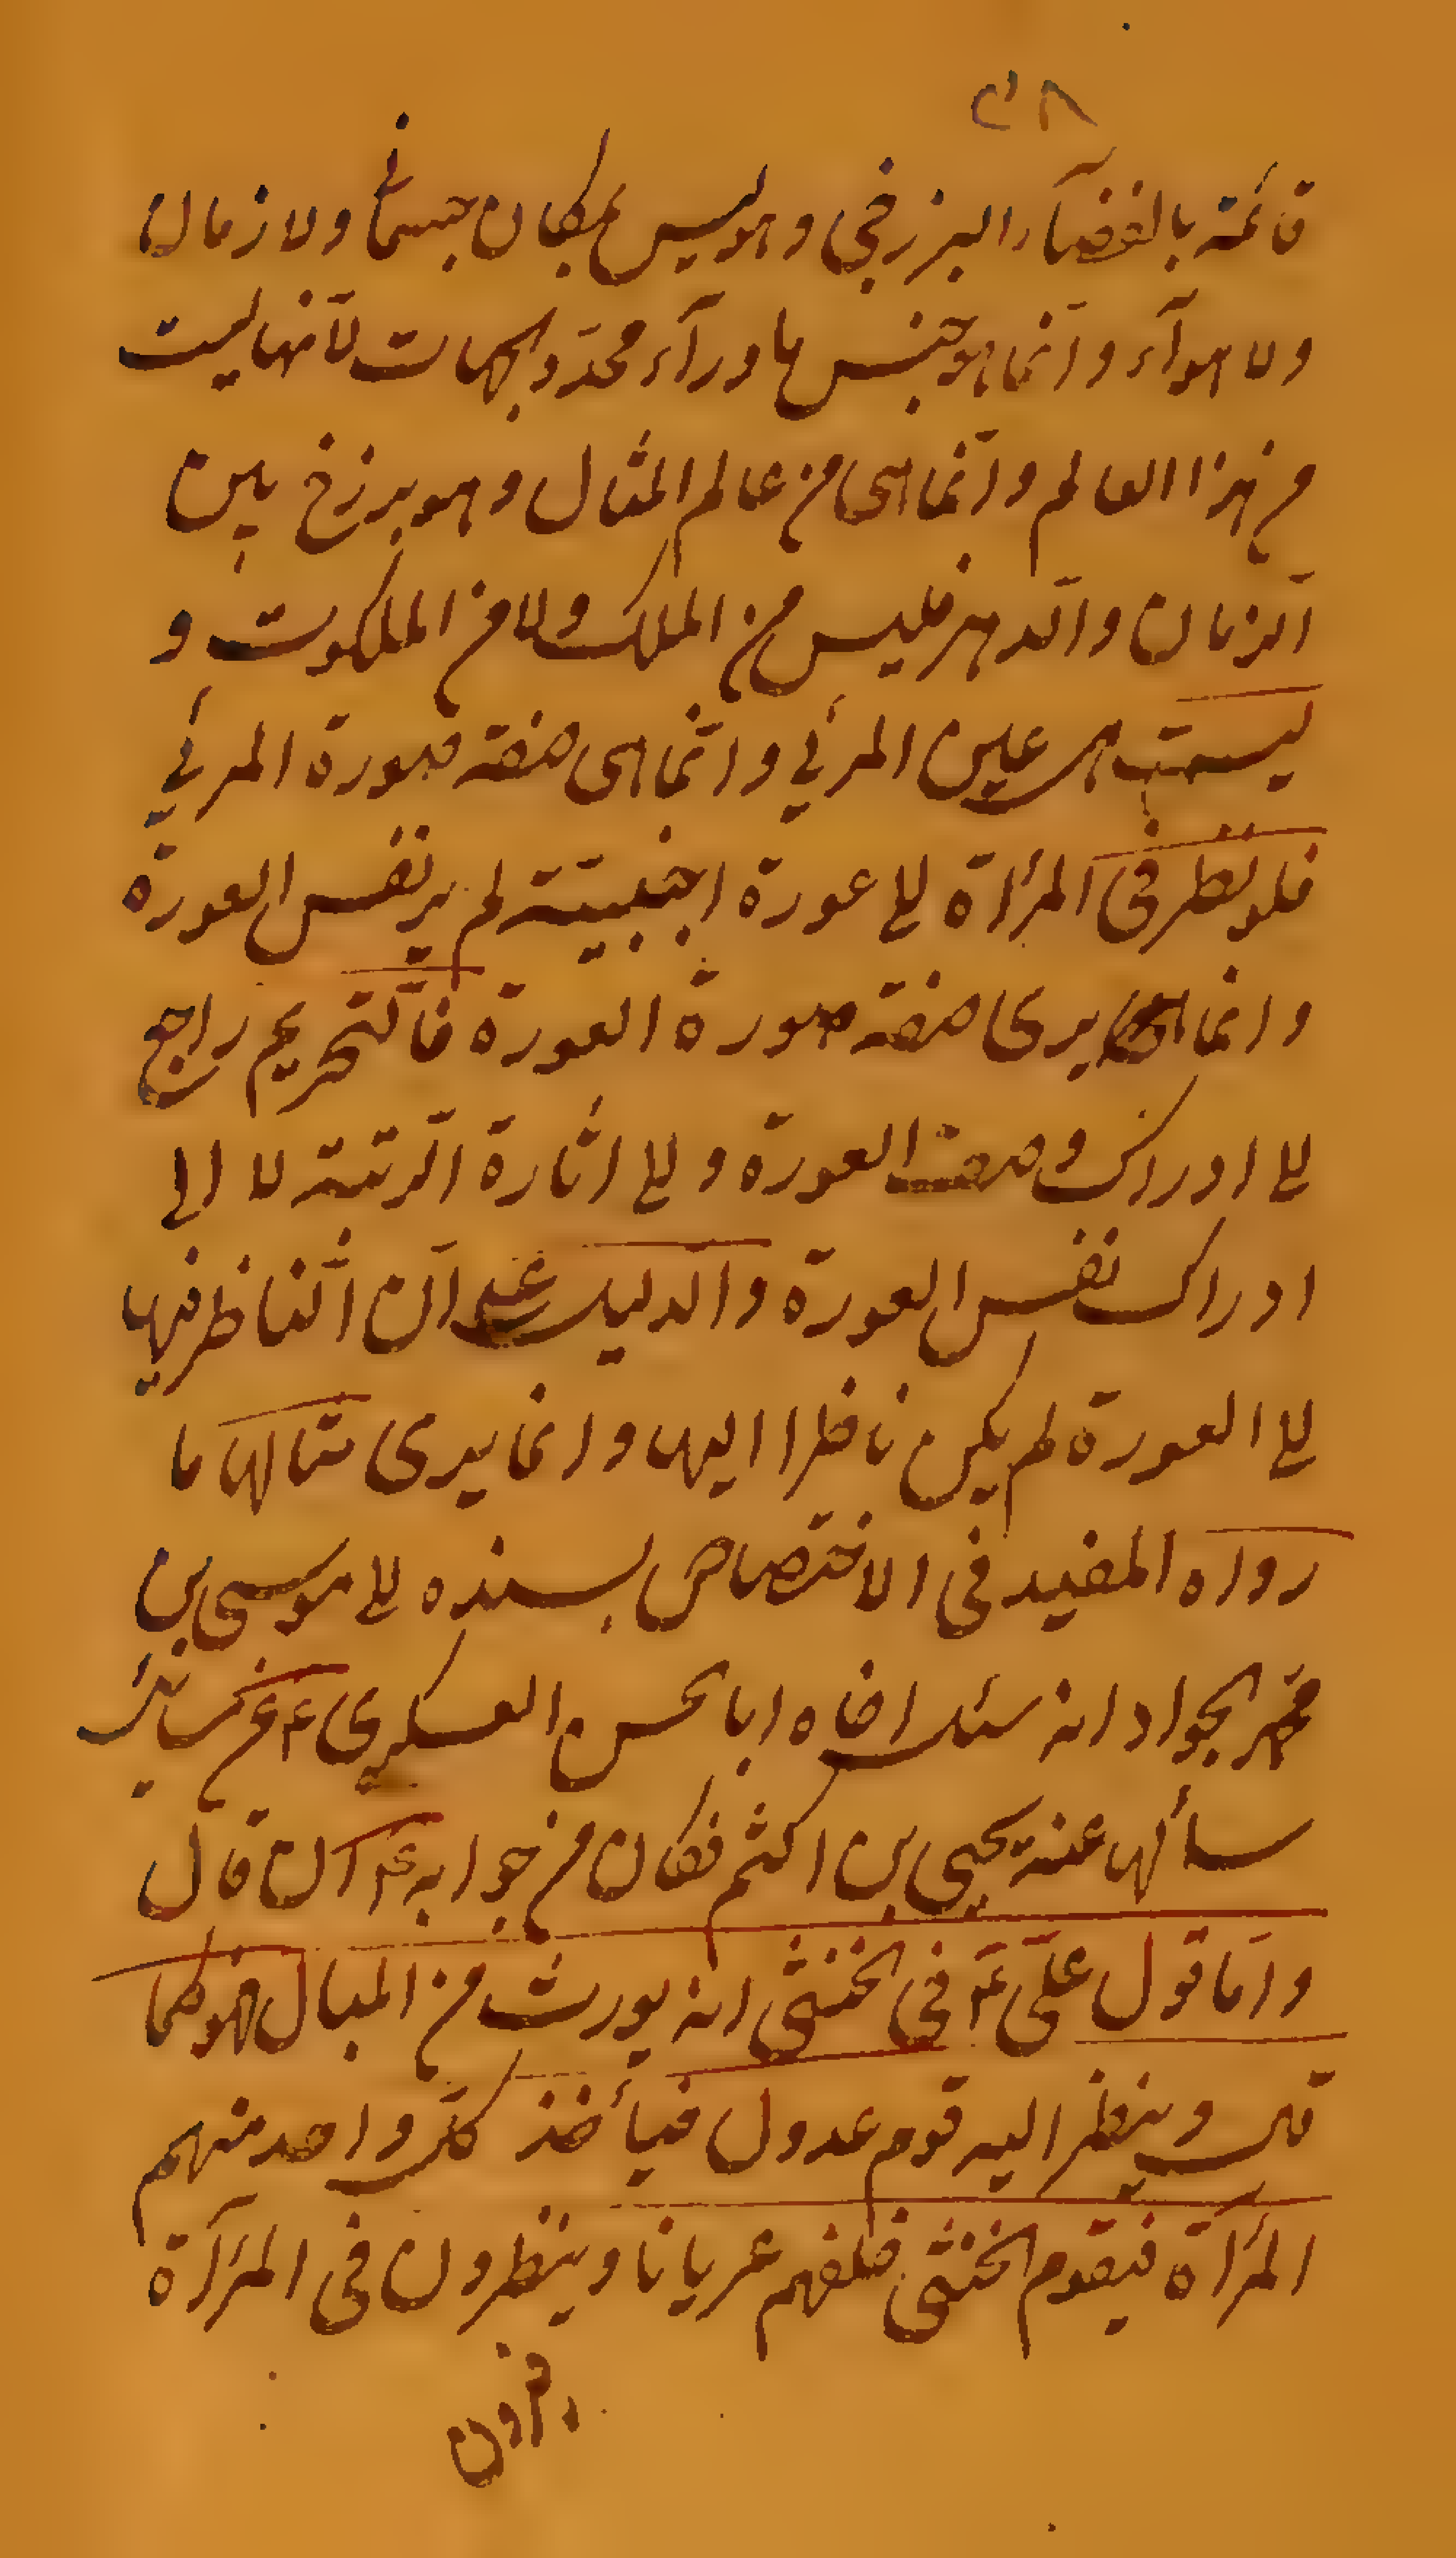 قائمة بالفضآء البرزخي وهو ليس بمكان جسماني ولا زمان
ولا هوآء وانّما هو جنس ما ورآء محدّد الجهات لأنّها ليست
من هذا العالم وانّما هى من عالم المثال وهو برزخ بين
الزمان والدهر فليس من الملك ولا من الملكوت و
ليست هى عين المرئي وانّما هى صفة صورة المرئي
فلو نظر فى المرآة الى عورة اجنبيّة لم ير نفس العورة
وانما يرى صفة صورة العورة فالتحريم راجع
الى ادراك وصف العورة والى اثارة الريبة لا الى
ادراك نفس العورة والدليل على انّ الناظر فيها
الى العورة لم يكن ناظرا اليها وانما يرى مثالها ما
رواه المفيد فى الاختصاص بسنده الى موسى بن
محمد الجواد انه سئل اخاه ابا الحسن العسكري ع عن مسائل
سألها عنه يحيى بن اكثم فكان من جوابه ع ان قال
وامّا قول علىّ ع فى الخنثى انه يورث من المبال فهو كما
قال وينظر اليه قوم عدول فيأخذ كلّ واحد منهم
المرآة فيقوم الخنثى خلفهم عريانا وينظرون فى المرآة
فيرون